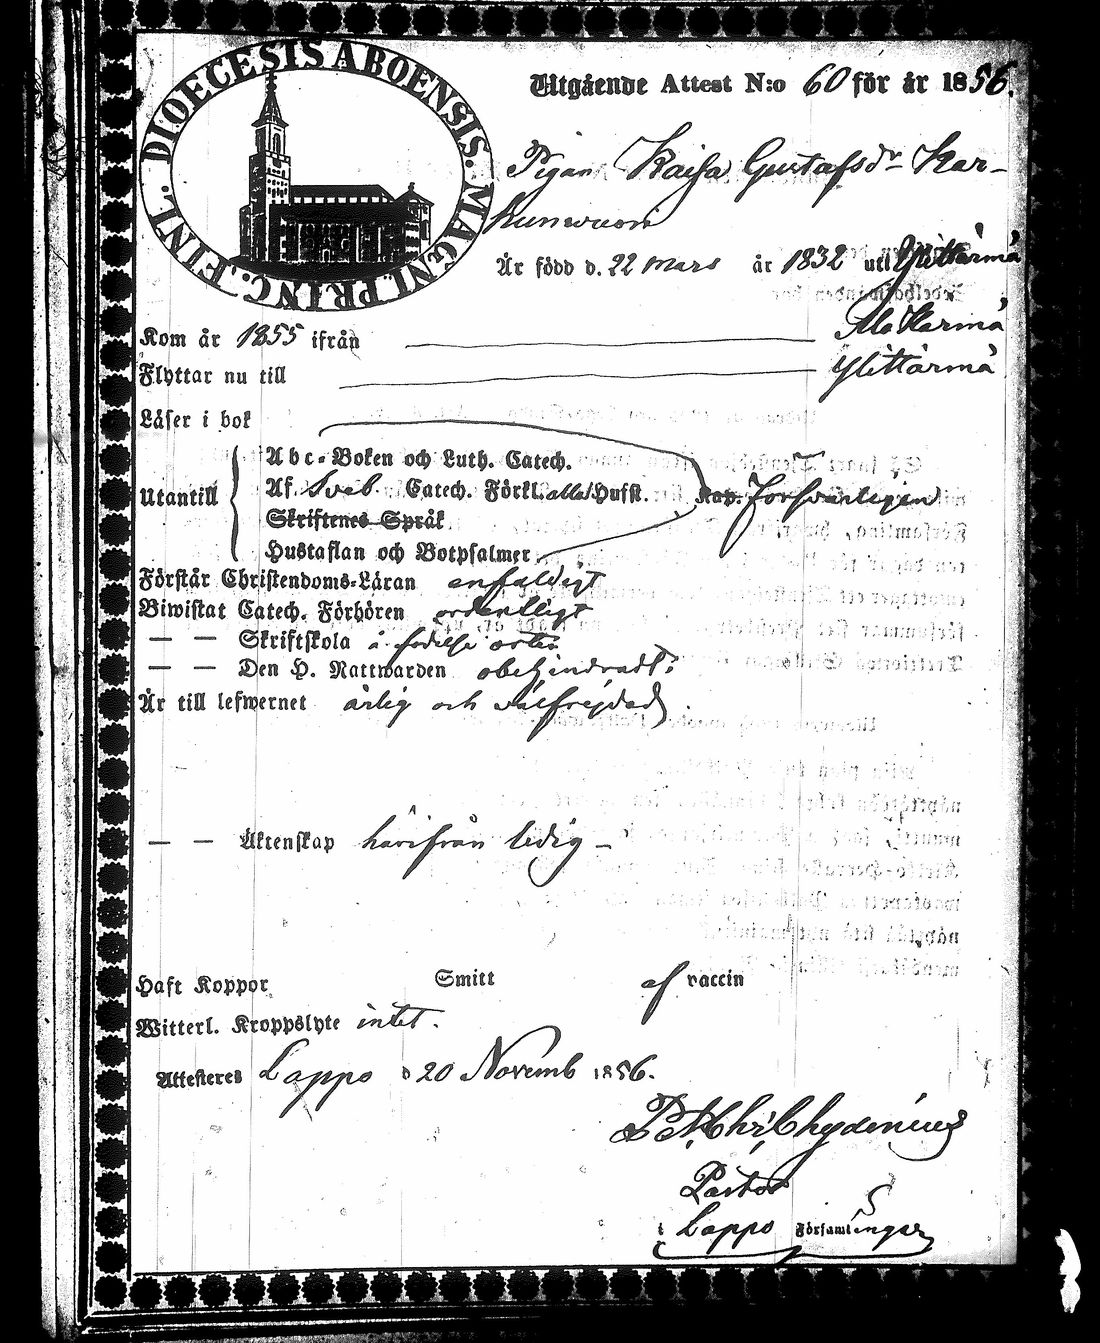 DIOECESIS ABOENSIS. MAGNI. PRINC. FINL.
Utgående Attest N:o 60 för år 1856.
Pigan Kaisa Gustafsdr Kar-
Är född d. 22 Mars år 1832 uti Ylikärmä
Kom år 1855 ifrån Ala Kärmä
Flyttar nu till Ylikärmä
Läser i bok
Utantill
Abc-Boken och Luth. Catech.
Af. Sveb. Catech. Förkl. alla Hufst. Kap. Försvarligen
Skriftenes Språk
Hustaflan och Botpsalmer
Förstår Christendoms-Läran enfaldigt
Biwistat Catech. Förhören ordentligt
— — Skriftskola å födelse orten
— — Den H. Nattwarden obehindradt;
Är till lefwernet ärlig och välfrejdad.
— — Äktenskap härifrån ledig –
Haft Koppor Smitt af vaccin
Witterl. Kroppslyte intet.
Attesteras Lappo d 20 Novemb 1856.
Chydenius
Pastor
i Lappo Församlingar